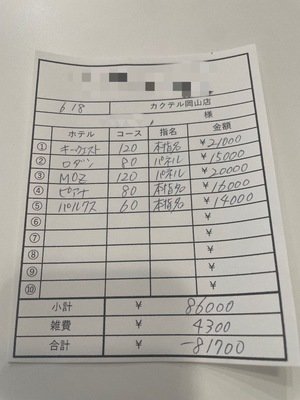 6 18 カクテル岡山店
様
ホテル コース 指名 金額
① キークエスト 120 本指名 ¥21000
② ロダン 80 パネル ¥15000
③ MOZ 120 パネル ¥20000
④ ピアナ 80 本指名 ¥16000
⑤ パルクス 60 本指名 ¥14000
⑥ ¥
⑦ ¥
⑧ ¥
⑨ ¥
⑩ ¥
小計 ¥ 86000
雑費 ¥ 4300
合計 ¥ -81700